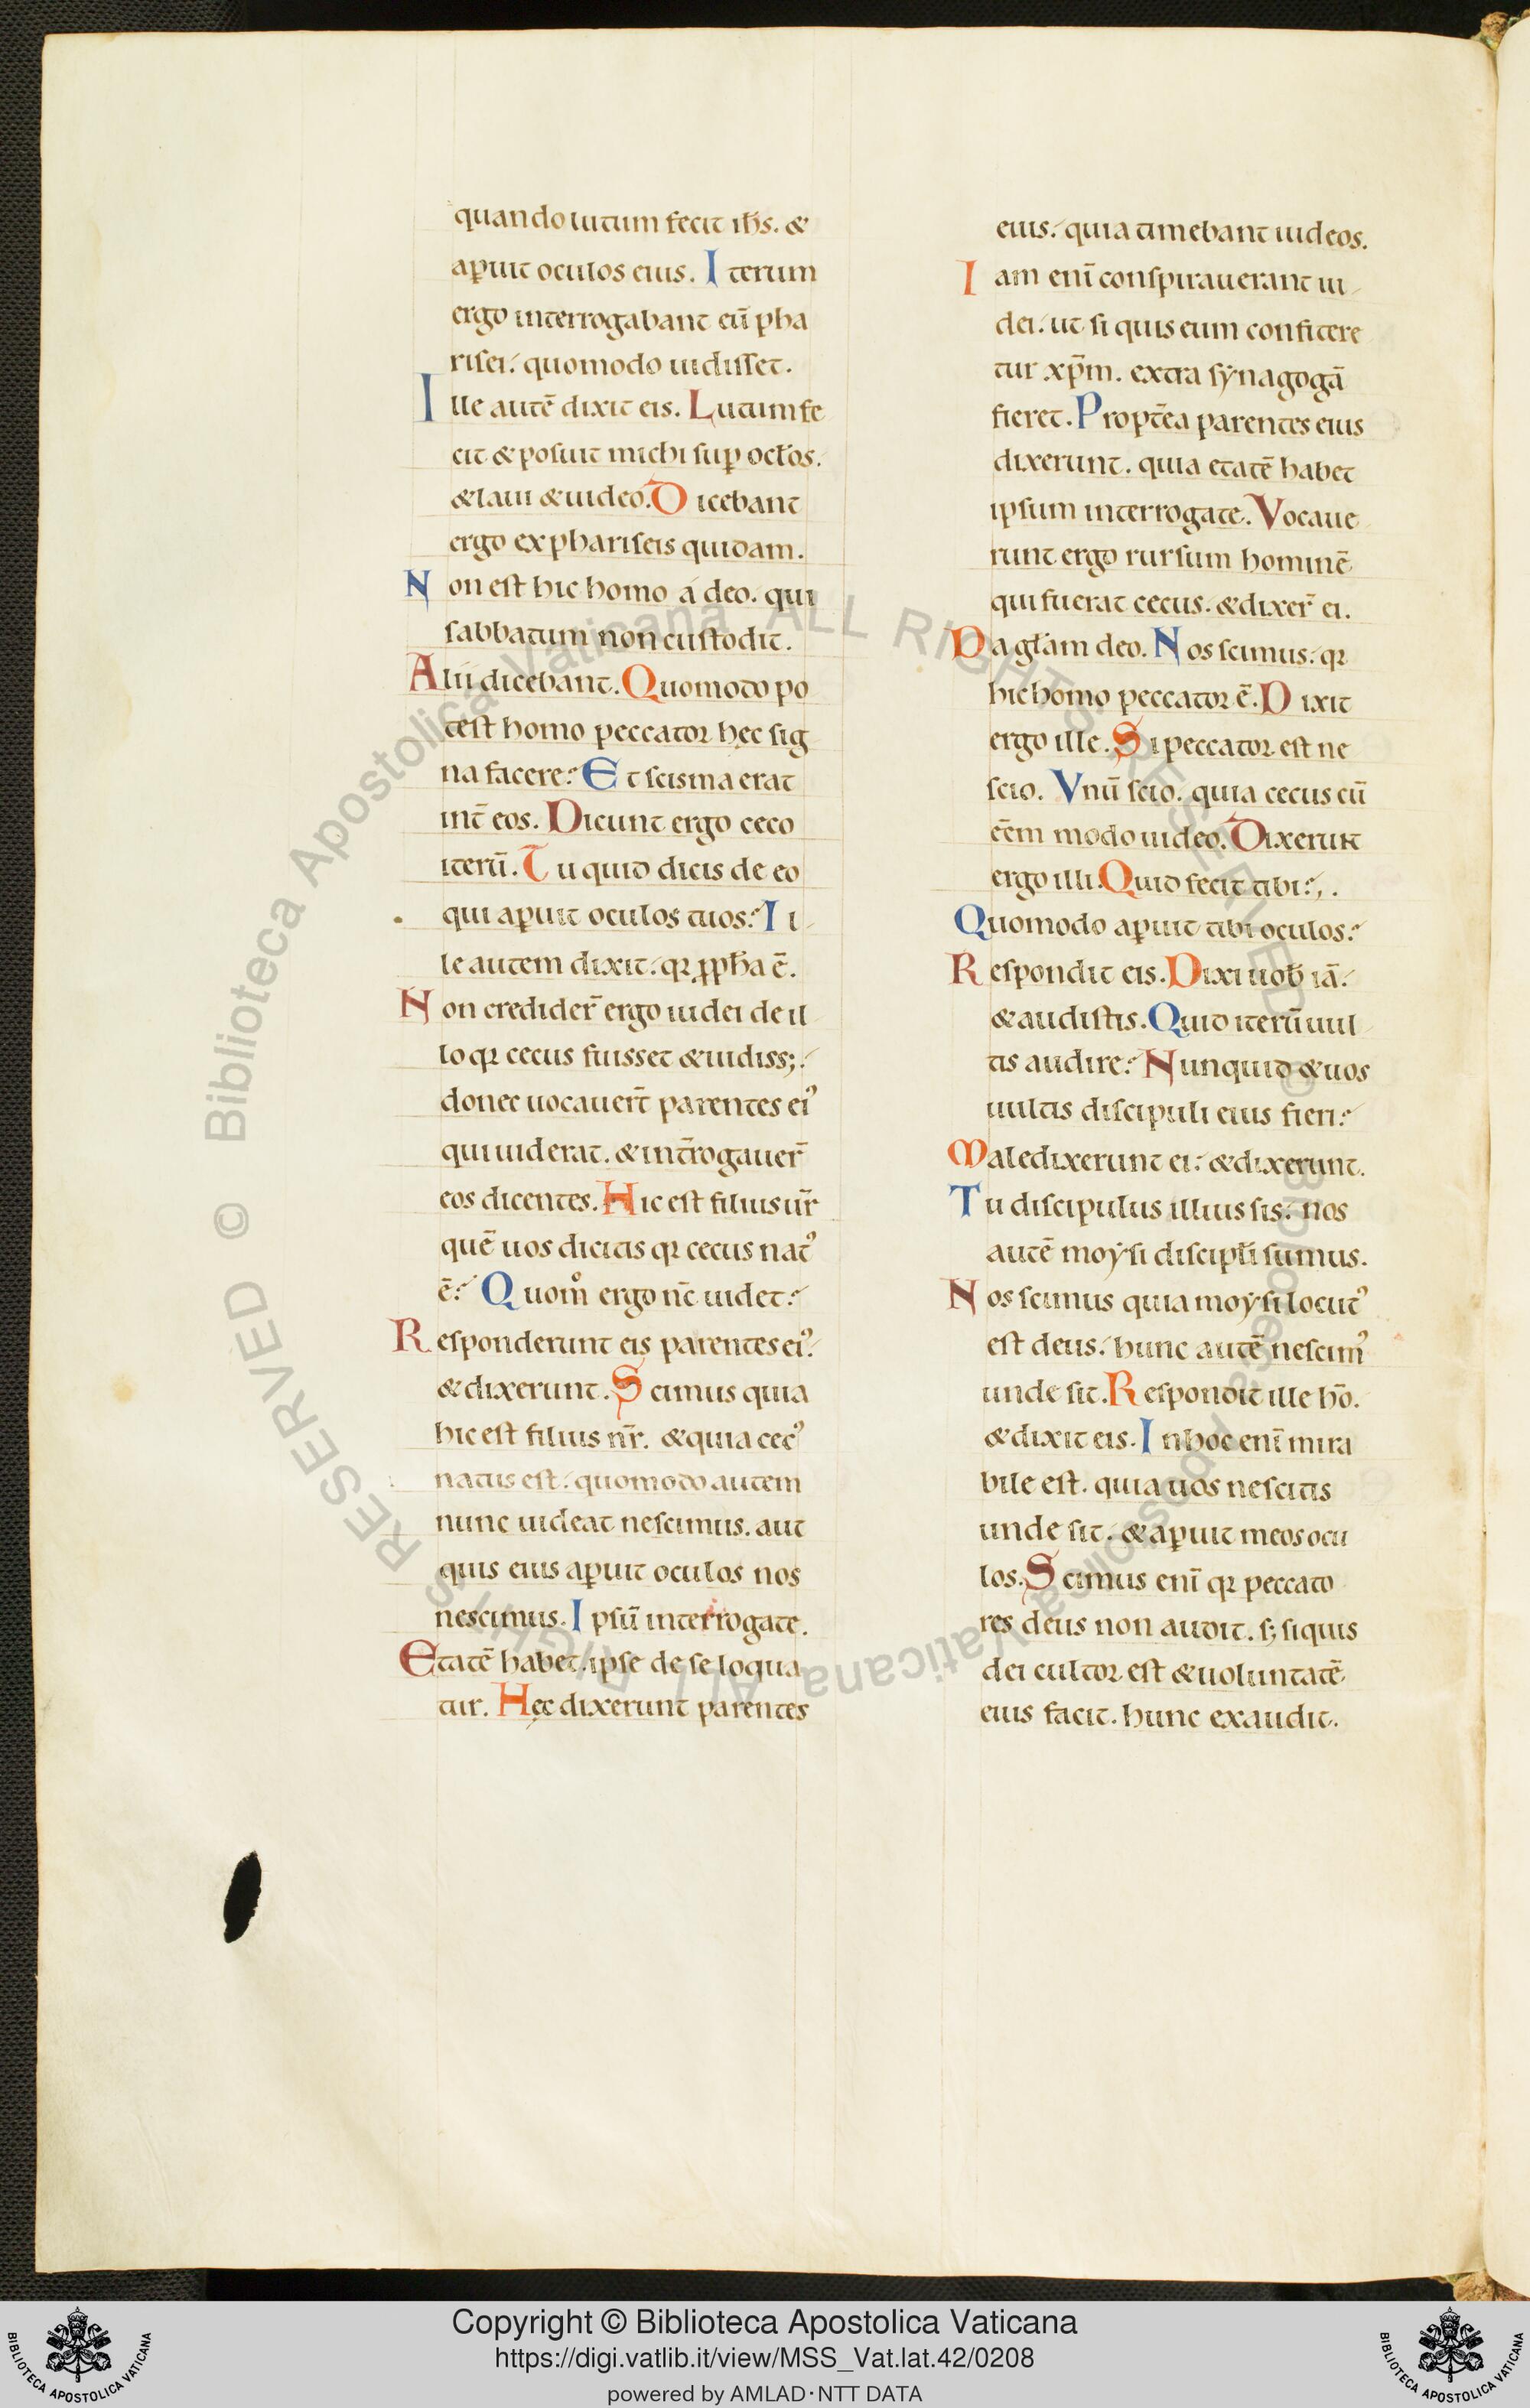 quando lutum fecit ihs̄. &
aꝑuit oculos eius. Iterum
ergo interrogabant eū pha
risei. quomodo uidisset.
Ille autē dixit eis. Lutum fe
cit & posuit michi suꝑ ocłos.
& laui & uideo. Dicebant
ergo ex phariseis quidam.
Non est hic homo a deo. qui
sabbatum non custodit.
Alii dicebant. Quomodo po
test homo peccator hęc sig
na facere? Et scisma erat
int̄ eos. Dicunt ergo ceco
iterū. Tu quid dicis de eo
qui aꝑuit oculos tuos? Il
le autem dixit. qꝛ ꝓpħa ē.
Non credider̄ ergo iudei de il
lo qꝛ cecus fuisset & uidiss;.
donec uocauer̄t parentes eiꝰ
qui uiderat. & int̄rogauer̄
eos dicentes. Hic est filius ur̄
quē uos dicitis qꝛ cecus natꝰ
ē? Quom̊ ergo nc̄ uidet?
Responderunt eis parentes eiꝰ.
& dixerunt. Scimus quia
hic est filius nr̄. & quia cecꝰ
natus est. quomodo autem
nunc uideat nescimus. aut
quis eius aꝑuit oculos nos
nescimus. Ipsū interrogate.
Etatē habet. ipse de se loqua
tur. Hęc dixerunt parentes
eius. quia timebant iudeos.
Iam enī conspirauerant iu-
dei. ut si quis eum confitere
tur xp̄m. extra synagogā
fieret. Propt̄ea parentes eius
dixerunt. quia etatē habet
ipsum interrogate. Vocaue
runt ergo rursum hominē
qui fuerat cecus. & dixer̄ ei.
Da głam deo. Nos scimus. qꝛ
hic homo peccator ē. Dixit
ergo ille. Si peccator est ne
scio. Vnū scio. quia cecus cū
eēm modo uideo. Dixerunt
ergo illi. Quid fecit tibi?
Quomodo aꝑuit tibi oculos?
Respondit eis. Dixi uob̄ iā.
& audistis. Quid iterū uul
tis audire? Nunquid & uos
uultis discipuli eius fieri?
Maledixerunt ei. & dixerunt.
Tu discipulus illius sis. nos
autē moysi discipłi sumus.
Nos scimus quia moysi locutꝰ
est deus. hunc autē nescimꝰ
unde sit. Respondit ille hō.
& dixit eis. In hoc enī mira
bile est. quia uos nescitis
unde sit. & aꝑuit meos ocu
los. Scimus enī qꝛ peccato
res deus non audit. s; siquis
dei cultor est & uoluntatē
eius facit. hunc exaudit.
© Biblioteca Apostolica Vaticana ALL RIGHTS RESERVED © Biblioteca Apostolica Vaticana ALL RIGHTS RESERVED
Copyright © Biblioteca Apostolica Vaticana
https://digi.vatlib.it/view/MSS_Vat.lat.42/0208
powered by AMLAD·NTT DATA
BIBLIOTECA APOSTOLICA VATICANA
BIBLIOTECA APOSTOLICA VATICANA